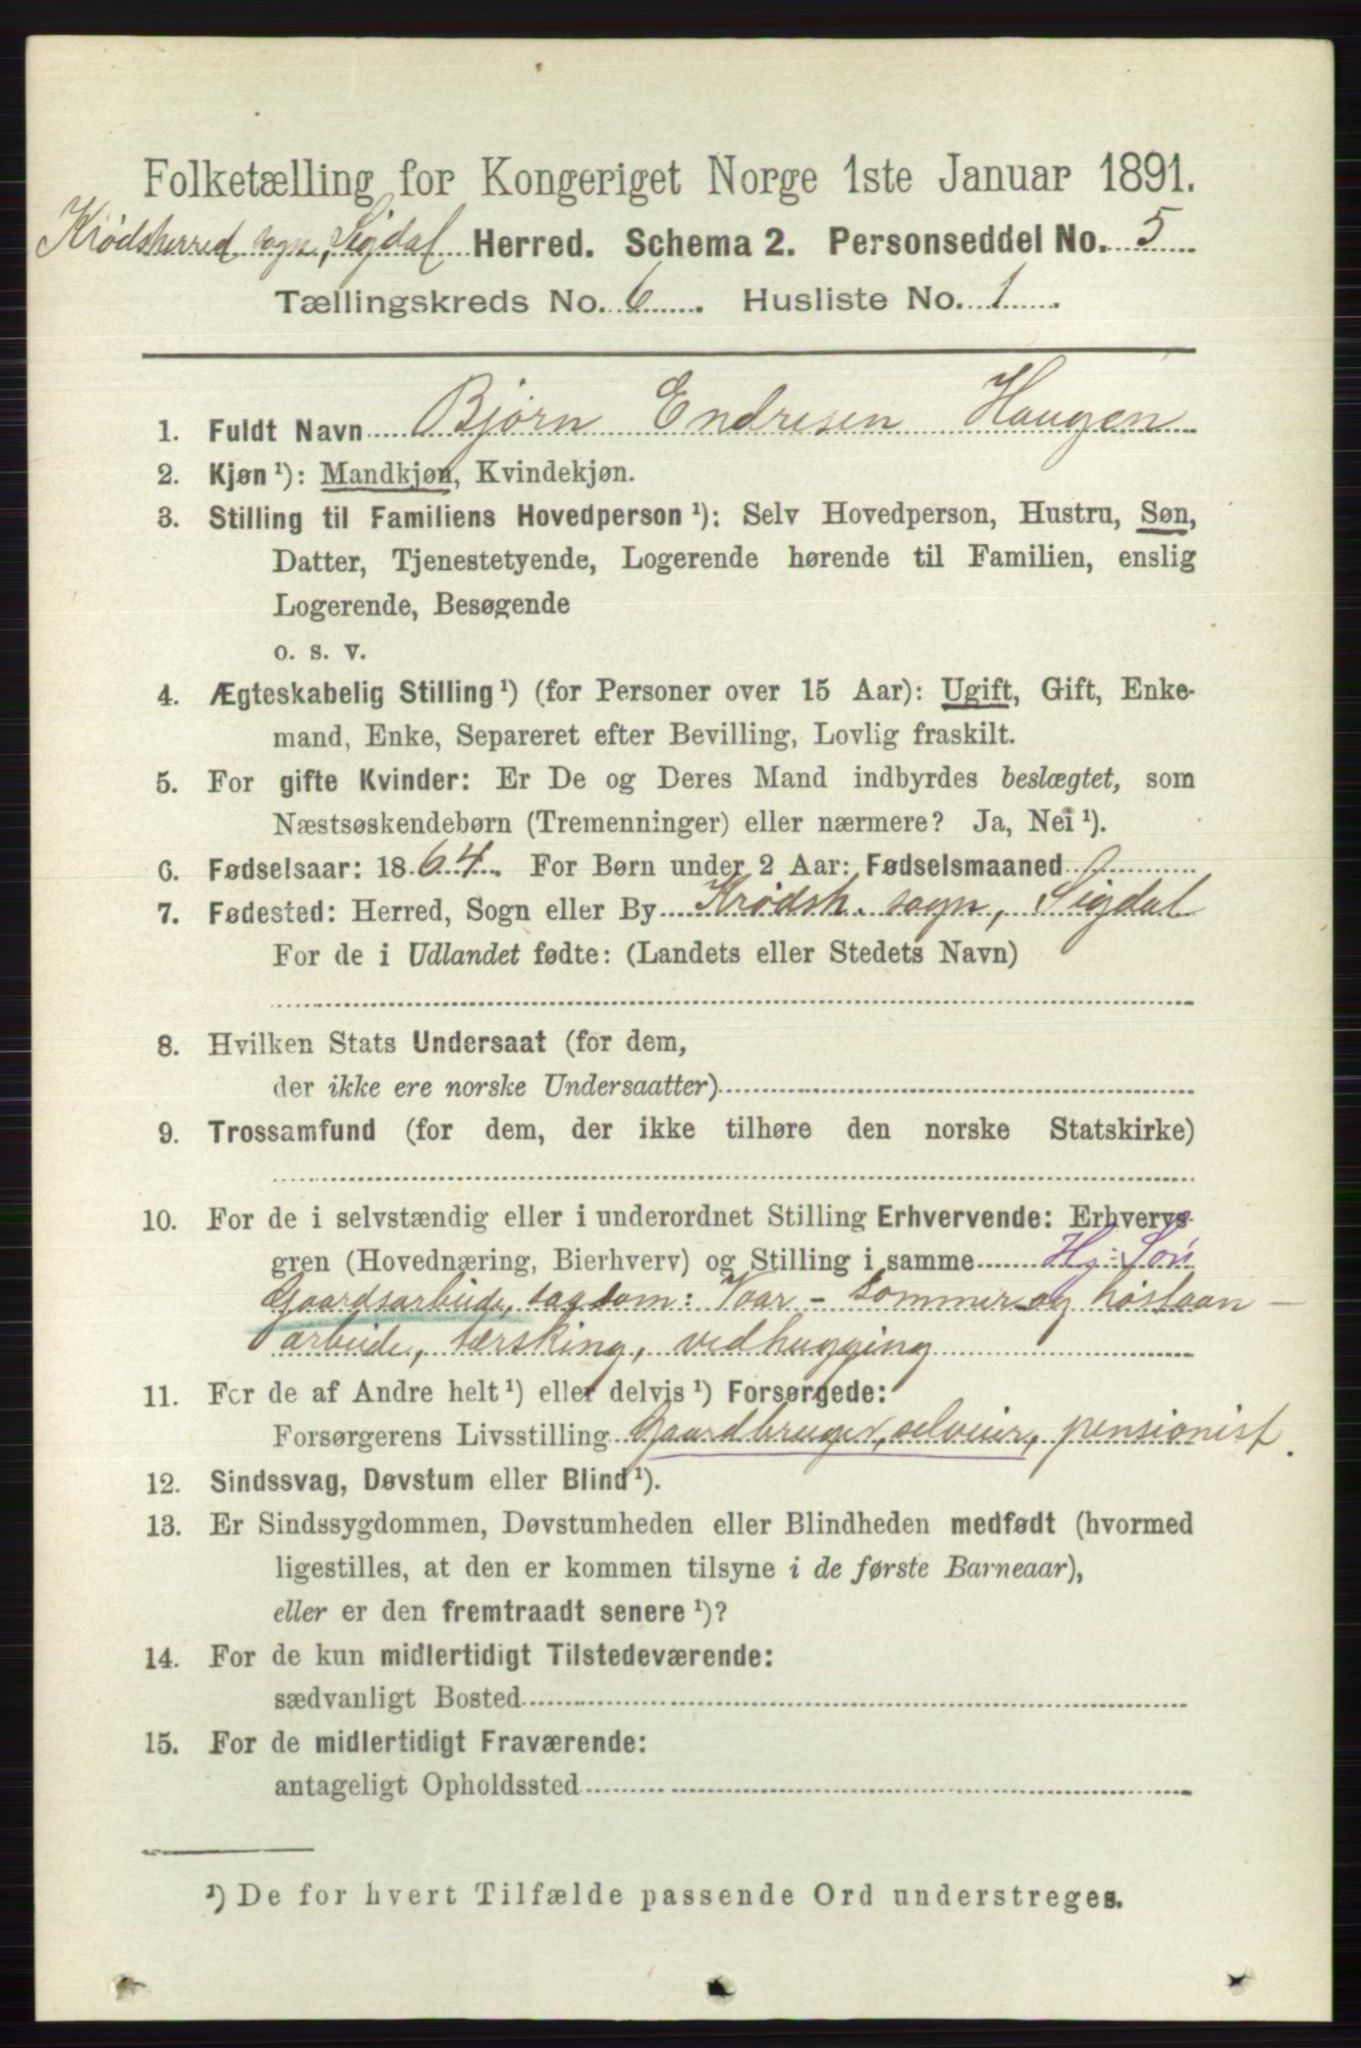 Folketælling for Kongeriget Norge 1ste Januar 1891.
Krødsherred sogn, Sigdal Herred. Schema 2. Personseddel No. 5
Tællingskreds No. 6. Husliste No. 1.
1. Fuldt Navn Bjørn Endresen Haugen
2. Kjøn ¹): Mandkjøn, Kvindekjøn.
3. Stilling til Familiens Hovedperson ¹): Selv Hovedperson, Hustru, Søn,
Datter, Tjenestetyende, Logerende hørende til Familien, enslig
Logerende, Besøgende
o. s. v.
4. Ægteskabelig Stilling ¹) (for Personer over 15 Aar): Ugift, Gift, Enke-
mand, Enke, Separeret efter Bevilling, Lovlig fraskilt.
5. For gifte Kvinder: Er De og Deres Mand indbyrdes beslægtet, som
Næstsøskendebørn (Tremenninger) eller nærmere? Ja, Nei ¹).
6. Fødselsaar: 1864. For Børn under 2 Aar: Fødselsmaaned
7. Fødested: Herred, Sogn eller By Krødsh. sogn, Sigdal
For de i Udlandet fødte: (Landets eller Stedets Navn)
8. Hvilken Stats Undersaat (for dem,
der ikke ere norske Undersaatter)
9. Trossamfund (for dem, der ikke tilhøre den norske Statskirke)
10. For de i selvstændig eller i underordnet Stilling Erhvervende: Erhvervs-
gren (Hovednæring, Bierhverv) og Stilling i samme Hj: Søn
Gaardsarbeide, saasom: Vaar- sommer og høstaan-
arbeide, tærsking, vedhugging
11. For de af Andre helt ¹) eller delvis ¹) Forsørgede:
Forsørgerens Livsstilling Gaardbruger, selveier, pensionist.
12. Sindssvag, Døvstum eller Blind ¹).
13. Er Sindssygdommen, Døvstumheden eller Blindheden medfødt (hvormed
ligestilles, at den er kommen tilsyne i de første Barneaar),
eller er den fremtraadt senere ¹)?
14. For de kun midlertidigt Tilstedeværende:
sædvanligt Bosted
15. For de midlertidigt Fraværende:
antageligt Opholdssted
¹) De for hvert Tilfælde passende Ord understreges.